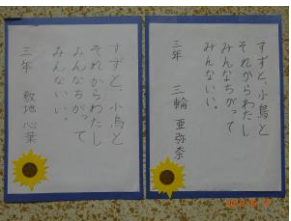 すずと、小鳥と
それからわたし
みんなちがって
みんないい。
三年 三輪 亜弥奈
すずと、小鳥と
それからわたし
みんなちがって
みんないい。
三年 敷地心葉